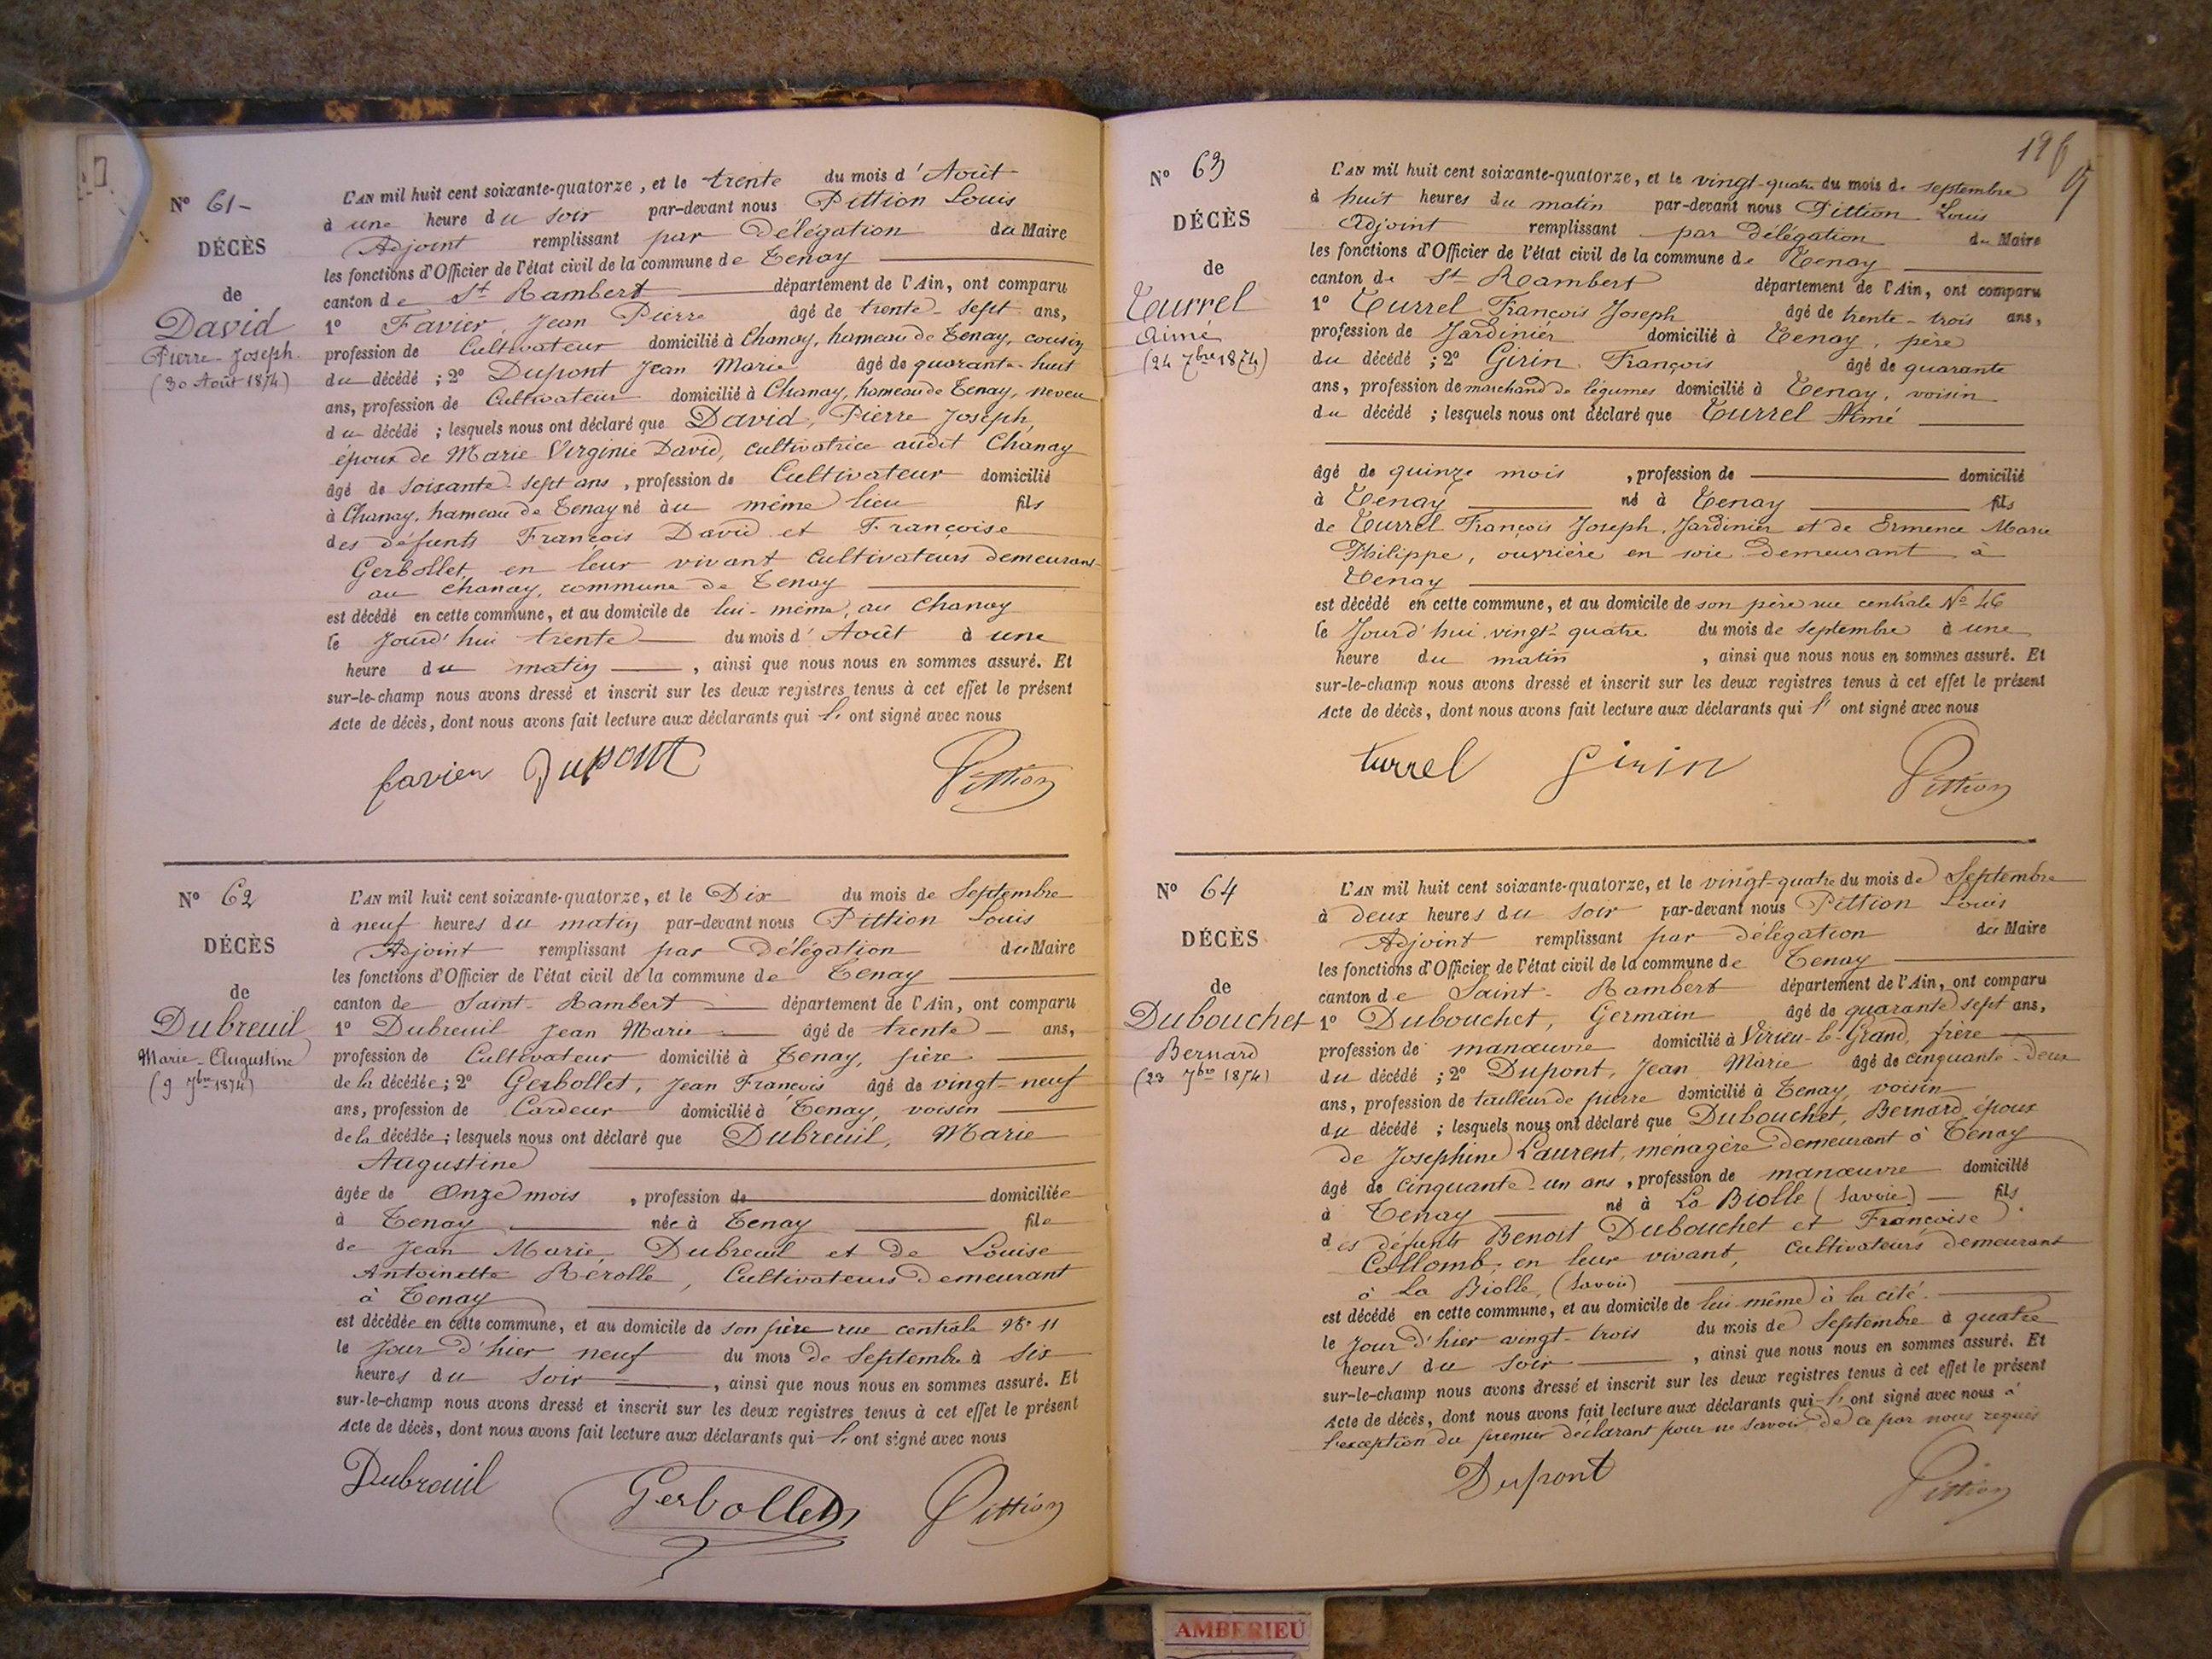 Nº 61-
DÉCÈS
de
David
Pierre-Joseph.
(30 Août 1874)
L'AN mil huit cent soixante-quatorze, et le trente du mois d'Août
à une heure du soir par-devant nous Pittion Louis
Adjoint remplissant par Délégation du Maire
les fonctions d'Officier de l'état civil de la commune de Tenay
canton de St Rambert département de l'Ain, ont comparu
1º Favier, Jean Pierre âgé de trente-sept ans,
profession de Cultivateur domicilié à Chanay, hameau de Tenay, cousin
du décédé ; 2º Dupont Jean Marie âgé de quarante-huit
ans, profession de Cultivateur domicilié à Chanay, hameau de Tenay, neveu
du décédé ; lesquels nous ont déclaré que David, Pierre Joseph,
époux de Marie Virginie David, cultivatrice audit Chanay
âgé de soixante-sept ans, profession de Cultivateur domicilié
à Chanay, hameau de Tenay né au même lieu fils
des défunts François David et Françoise
Gerbollet, en leur vivant cultivateurs demeurant
au Chanay, commune de Tenay
est décédé en cette commune, et au domicile de lui-même, au Chanay
le Jourd'hui trente du mois d'Août à une
heure du matin, ainsi que nous nous en sommes assuré. Et
sur-le-champ nous avons dressé et inscrit sur les deux registres tenus à cet effet le présent
Acte de décès, dont nous avons fait lecture aux déclarants qui l' ont signé avec nous
favier Dupont Pittion
Nº 62
DÉCÈS
de
Dubreuil
Marie-Augustine
(9 7bre 1874)
L'AN mil huit cent soixante-quatorze, et le Dix du mois de Septembre
à neuf heures du matin par-devant nous Pittion Louis
Adjoint remplissant par Délégation du Maire
les fonctions d'Officier de l'état civil de la commune de Tenay
canton de Saint-Rambert département de l'Ain, ont comparu
1º Dubreuil Jean Marie âgé de trente ans,
profession de Cultivateur domicilié à Tenay, père
de la décédée ; 2º Gerbollet, Jean François âgé de vingt-neuf
ans, profession de Cardeur domicilié à Tenay, voisin
de la décédée ; lesquels nous ont déclaré que Dubreuil, Marie
Augustine
âgée de Onze mois, profession de domiciliée
à Tenay née à Tenay fille
de Jean Marie Dubreuil et de Louise
Antoinette Rérolle, Cultivateurs demeurant
à Tenay
est décédée en cette commune, et au domicile de son père rue centrale Nº 11
le Jour d'hier neuf du mois de Septembre à six
heures du soir, ainsi que nous nous en sommes assuré. Et
sur-le-champ nous avons dressé et inscrit sur les deux registres tenus à cet effet le présent
Acte de décès, dont nous avons fait lecture aux déclarants qui l' ont signé avec nous
Dubreuil Gerbollet Pittion
Nº 63
DÉCÈS
de
Turrel
Aimé
(24 7bre 1874)
L'AN mil huit cent soixante-quatorze, et le vingt-quatre du mois de septembre
à huit heures du matin par-devant nous Pittion Louis
Adjoint remplissant par délégation du Maire
les fonctions d'Officier de l'état civil de la commune de Tenay
canton de St-Rambert département de l'Ain, ont comparu
1º Turrel François Joseph âgé de trente-trois ans,
profession de Jardinier domicilié à Tenay, père
du décédé ; 2º Girin François âgé de quarante
ans, profession de marchand de légumes domicilié à Tenay, voisin
du décédé ; lesquels nous ont déclaré que Turrel Aimé
âgé de quinze mois, profession de domicilié
à Tenay né à Tenay fils
de Turrel François Joseph, Jardinier et de Ermence Marie
Philippe, ouvrière en soie demeurant à
Tenay
est décédé en cette commune, et au domicile de son père rue centrale Nº 46
le Jourd'hui vingt-quatre du mois de septembre à une
heure du matin, ainsi que nous nous en sommes assuré. Et
sur-le-champ nous avons dressé et inscrit sur les deux registres tenus à cet effet le présent
Acte de décès, dont nous avons fait lecture aux déclarants qui l' ont signé avec nous
turrel Girin Pittion
Nº 64
DÉCÈS
de
Dubouchet
Bernard
(23 7bre 1874)
L'AN mil huit cent soixante-quatorze, et le vingt-quatre du mois de Septembre
à deux heures du soir par-devant nous Pittion Louis
Adjoint remplissant par délégation du Maire
les fonctions d'Officier de l'état civil de la commune de Tenay
canton de Saint-Rambert département de l'Ain, ont comparu
1º Dubouchet, Germain âgé de quarante sept ans,
profession de manœuvre domicilié à Virieu-le-Grand, frère
du décédé ; 2º Dupont, Jean Marie âgé de cinquante-deux
ans, profession de tailleur de pierre domicilié à Tenay, voisin
du décédé ; lesquels nous ont déclaré que Dubouchet, Bernard, époux
de Josephine Laurent, ménagère demeurant à Tenay
âgé de cinquante-un ans, profession de manœuvre domicilié
à Tenay né à La Biolle (Savoie) fils
des défunts Benoit Dubouchet et Françoise
Collomb, en leur vivant, cultivateurs demeurant
à La Biolle, (Savoie)
est décédé en cette commune, et au domicile de lui-même à la cité.
le Jour d'hier vingt-trois du mois de Septembre à quatre
heures du soir, ainsi que nous nous en sommes assuré. Et
sur-le-champ nous avons dressé et inscrit sur les deux registres tenus à cet effet le présent
Acte de décès, dont nous avons fait lecture aux déclarants qui l' ont signé avec nous à
l'exception du premier déclarant pour ne savoir de ce par nous requis
Dupont Pittion
AMBERIEU